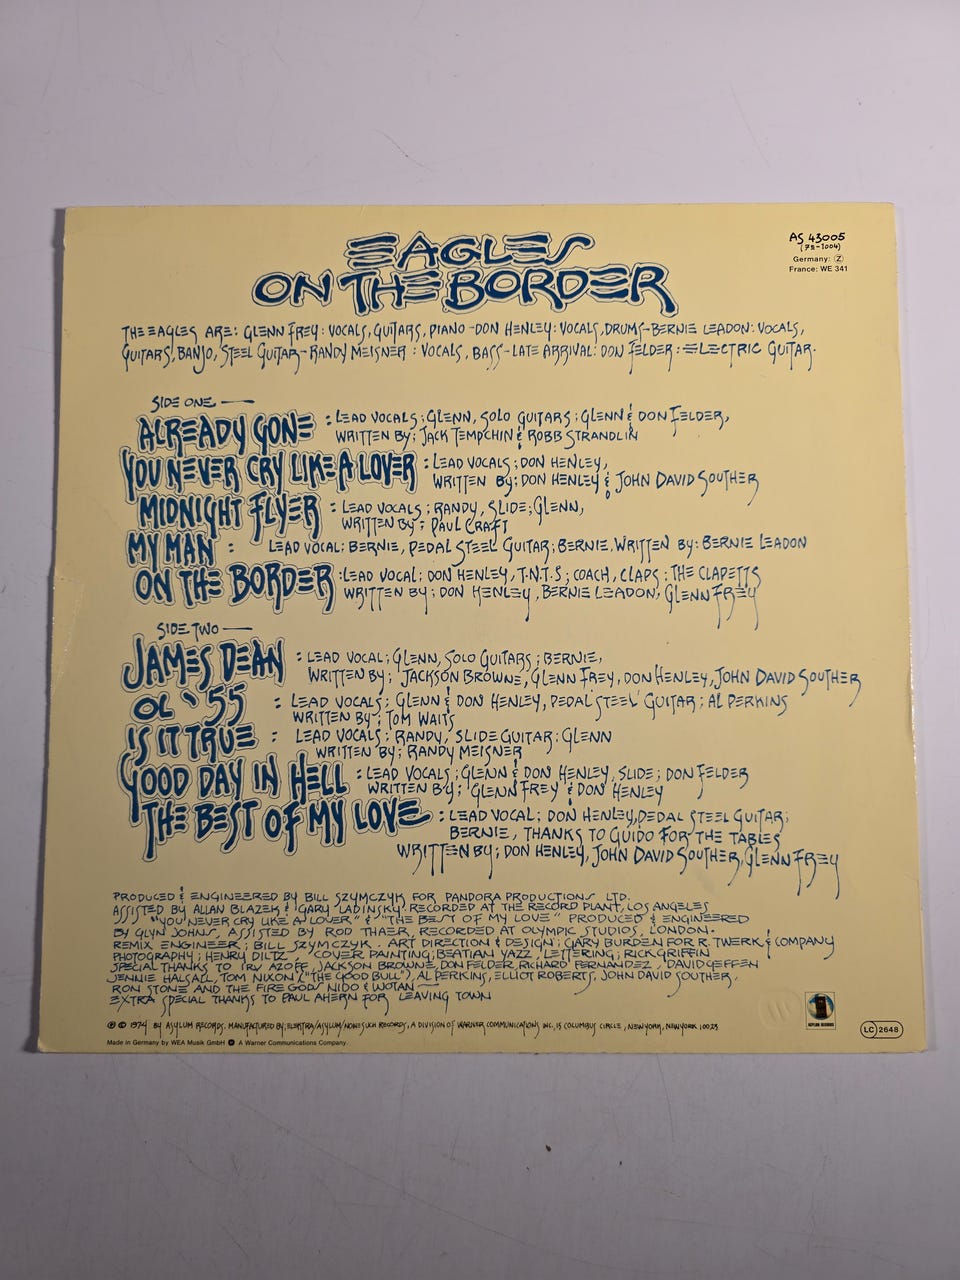 EAGLES
ON THE BORDER
AS 43005
(7E-1004)
Germany: Z
France: WE 341
THE EAGLES ARE: GLENN FREY: VOCALS, GUITARS, PIANO - DON HENLEY: VOCALS, DRUMS - BERNIE LEADON: VOCALS,
GUITARS, BANJO, STEEL GUITAR - RANDY MEISNER: VOCALS, BASS - LATE ARRIVAL: DON FELDER: ELECTRIC GUITAR.
SIDE ONE —
ALREADY GONE : LEAD VOCALS; GLENN, SOLO GUITARS; GLENN & DON FELDER,
WRITTEN BY; JACK TEMPCHIN & ROBB STRANDLIN
YOU NEVER CRY LIKE A LOVER : LEAD VOCALS; DON HENLEY,
WRITTEN BY; DON HENLEY & JOHN DAVID SOUTHER
MIDNIGHT FLYER : LEAD VOCALS; RANDY, SLIDE; GLENN,
WRITTEN BY; PAUL CRAFT
MY MAN : LEAD VOCAL; BERNIE, PEDAL STEEL GUITAR; BERNIE, WRITTEN BY: BERNIE LEADON
ON THE BORDER : LEAD VOCAL; DON HENLEY, T.N.T.S; COACH, CLAPS; THE CLAPETTS
WRITTEN BY; DON HENLEY, BERNIE LEADON, GLENN FREY
SIDE TWO —
JAMES DEAN : LEAD VOCAL; GLENN, SOLO GUITARS; BERNIE,
WRITTEN BY; JACKSON BROWNE, GLENN FREY, DON HENLEY, JOHN DAVID SOUTHER
OL '55 : LEAD VOCALS; GLENN & DON HENLEY, PEDAL STEEL GUITAR; AL PERKINS
WRITTEN BY; TOM WAITS
IS IT TRUE : LEAD VOCALS; RANDY, SLIDE GUITAR: GLENN
WRITTEN BY; RANDY MEISNER
GOOD DAY IN HELL : LEAD VOCALS; GLENN & DON HENLEY, SLIDE; DON FELDER
WRITTEN BY; GLENN FREY & DON HENLEY
THE BEST OF MY LOVE : LEAD VOCAL; DON HENLEY, PEDAL STEEL GUITAR;
BERNIE, THANKS TO GUIDO FOR THE TABLES
WRITTEN BY; DON HENLEY, JOHN DAVID SOUTHER, GLENN FREY
PRODUCED & ENGINEERED BY BILL SZYMCZYK FOR PANDORA PRODUCTIONS LTD.
ASSISTED BY ALLAN BLAZEK & GARY LADINSKY RECORDED AT THE RECORD PLANT, LOS ANGELES
"YOU NEVER CRY LIKE A LOVER" & "THE BEST OF MY LOVE" PRODUCED & ENGINEERED
BY GLYN JOHNS, ASSISTED BY ROD THAER, RECORDED AT OLYMPIC STUDIOS, LONDON.
REMIX ENGINEER; BILL SZYMCZYK. ART DIRECTION & DESIGN; GARY BURDEN FOR R. TWERK & COMPANY
PHOTOGRAPHY; HENRY DILTZ COVER PAINTING; BEATIAN YAZZ LETTERING; RICK GRIFFIN
SPECIAL THANKS TO IRV AZOFF, JACKSON BROWNE, DON FELDER, RICHARD FERNANDEZ, DAVID GEFFEN
JENNIE HALSALL, TOM NIXON ("THE GOOD BULL"), AL PERKINS, ELLIOT ROBERTS, JOHN DAVID SOUTHER,
RON STONE AND THE FIRE GODS NIDO & WOTAN —
EXTRA SPECIAL THANKS TO PAUL AHERN FOR LEAVING TOWN
Ⓟ © 1974 BY ASYLUM RECORDS. MANUFACTURED BY ELEKTRA/ASYLUM/NONESUCH RECORDS, A DIVISION OF WARNER COMMUNICATIONS INC, 15 COLUMBUS CIRCLE, NEW YORK, NEW YORK 10023
Made in Germany by WEA Musik GmbH A Warner Communications Company.
ASYLUM RECORDS
LC 2648